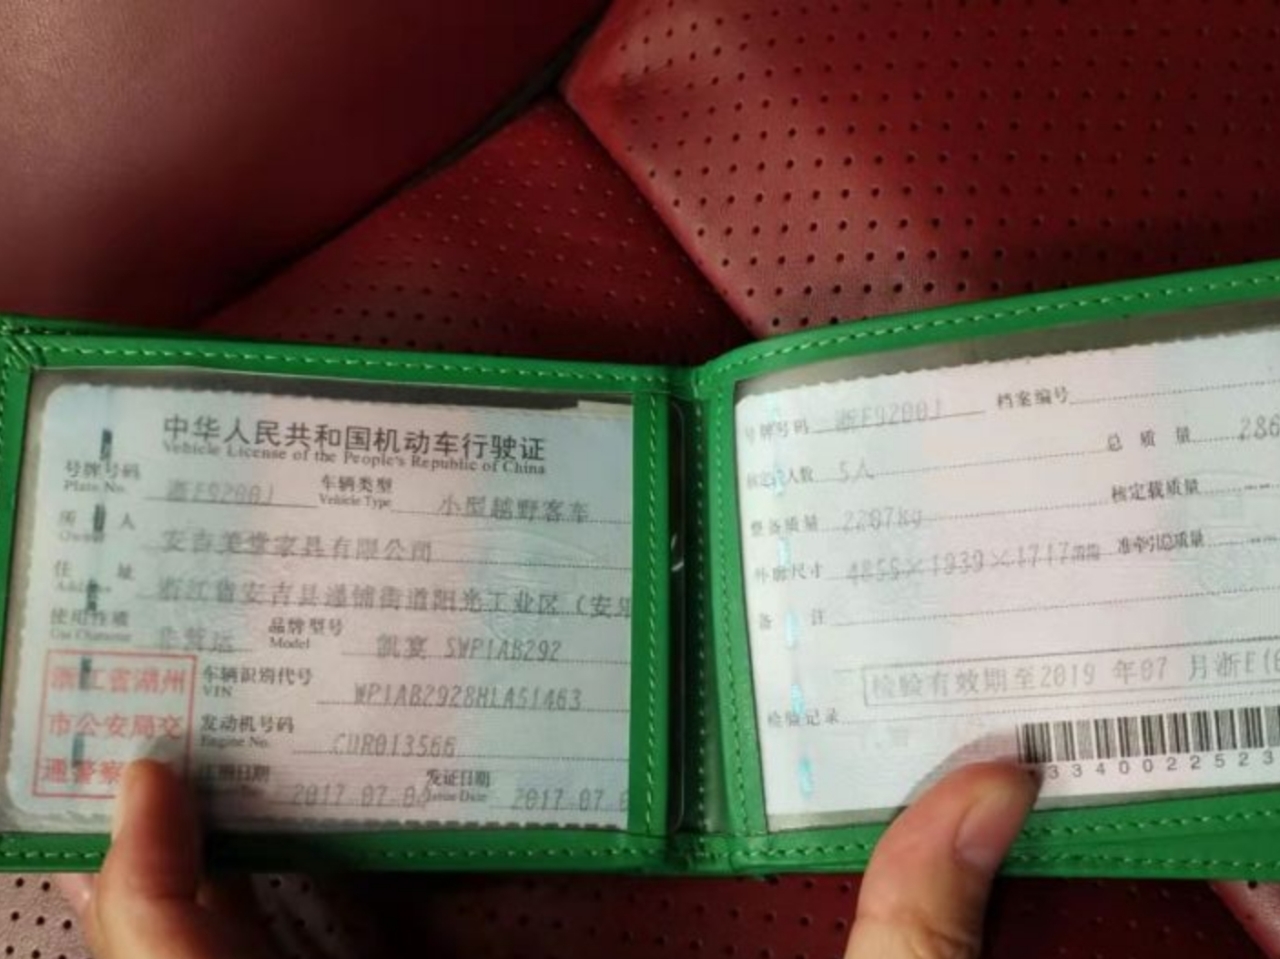 中华人民共和国机动车行驶证
Vehicle License of the People's Republic of China
号牌号码 浙F9200J 车辆类型 小型越野客车
Plate No. Vehicle Type
所 人 安吉美誉家具有限公司
Owner
住 址 浙江省安吉县递铺街道阳光工业区(安
Address
使用性质 非营运 品牌型号 凯宴 SWP1AB292
Use Character Model
浙江省湖州
市公安局交
通警察
车辆识别代号 WP1AB2928HLA51463
VIN
发动机号码 CUR013566
Engine No.
注册日期 2017.07.0 发证日期 2017.07.
Issue Date
号牌号码 浙F9200J 档案编号
核定 人数 5人 总质量 286
整备质量 2207kg 核定载质量 --
外廓尺寸 4855×1939×1717mm 准牵引总质量 --
备 注
检验有效期至2019 年07 月浙E(
检验记录
3340022523